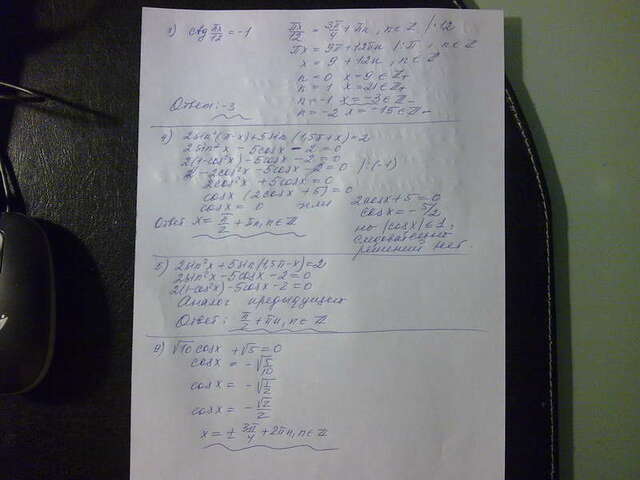 3) ctg πx/12 = -1
πx/12 = 3π/4 + πn, n ∈ Z /·12
πx = 9π + 12πn /:π, n ∈ Z
x = 9 + 12n, n ∈ Z
n=0 x=9 ∈ Z+
n=1 x=21 ∈ Z+
n=-1 x=-3 ∈ Z-
n=-2 x=-15 ∈ Z-
Ответ: -3
4) 2sin²(π-x)+5sin(1,5π+x)=2
2sin²x - 5cosx - 2=0
2(1-cos²x) - 5cosx - 2=0
2 - 2cos²x - 5cosx - 2=0 /·(-1)
2cos²x + 5cosx=0
cosx (2cosx + 5)=0
cosx = 0 или 2cosx+5=0
cosx = -5/2
но |cosx| ≤ 1,
следовательно
решений нет.
Ответ x = π/2 + πn, n ∈ Z
5) 2sin²x + 5sin(1,5π-x)=2
2sin²x - 5cosx - 2=0
2(1-cos²x) - 5cosx - 2=0
Аналог предыдущих
Ответ: π/2 + πn, n ∈ Z
√10 cosx + √5 = 0
cosx = -√5/10
cosx = -√1/2
cosx = -√2/2
x = ± 3π/4 + 2πn, n ∈ Z